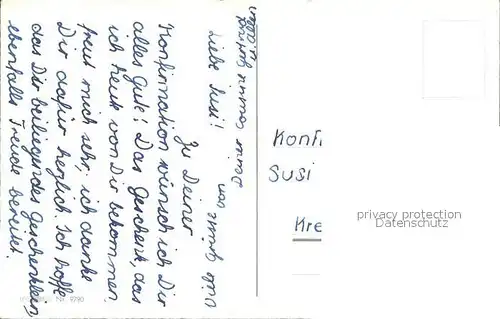 Liebe Susi!
Zu Deiner
Konfirmation wünsch ich Dir
alles Gute! Das Geschenk, das
ich heut von Dir bekommen,
freut mich sehr, ich danke
Dir dafür herzlich. Ich hoffe
das Dir beiliegendes Geschenklein
ebenfalls Freude bereitet.
von
Deiner
Konfi
Susi
Kre
privacy protection
Datenschutz
Nr. 9790